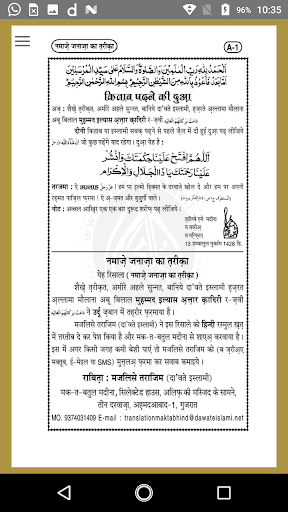 10:35
नमाज़े जनाज़ा का त़रीक़ा
A-1
اَلْحَمْدُ لِلّٰهِ رَبِّ الْعٰلَمِيْنَ وَالصَّلٰوةُ وَالسَّلَامُ عَلٰى سَيِّدِ الْمُرْسَلِيْنَ
اَمَّا بَعْدُ فَاَعُوْذُ بِاللّٰهِ مِنَ الشَّيْطٰنِ الرَّجِيْمِ بِسْمِ اللّٰهِ الرَّحْمٰنِ الرَّحِيْمِ
किताब पढ़ने की दुआ
अज़ : शैख़े त़रीक़त, अमीरे अहले सुन्नत, बानिये दा'वते इस्लामी, ह़ज़रते अ़ल्लामा मौलाना
अबू बिलाल मुह़म्मद इल्यास अ़त्त़ार क़ादिरी र-ज़वी
दीनी किताब या इस्लामी सबक़ पढ़ने से पहले ज़ैल में दी हुई दुआ़ पढ़ लीजिये
जो कुछ पढ़ेंगे याद रहेगा। दुआ़ येह है :
اَللّٰهُمَّ افْتَحْ عَلَيْنَا حِكْمَتَكَ وَانْشُرْ
عَلَيْنَا رَحْمَتَكَ يَا ذَا الْجَلَالِ وَالْاِكْرَام
तरजमा : ऐ अल्लाह ! हम पर इ़ल्मो ह़िक्मत के दरवाज़े खोल दे और हम पर अपनी
रह़मत नाज़िल फ़रमा ! ऐ अ़-ज़मत और बुज़ुर्गी वाले।
नोट : अव्वल आख़िर एक एक बार दुरूद शरीफ़ पढ़ लीजिये।
त़ालिबे ग़मे मदीना
व बक़ीअ़
व मग़्फ़िरत
13 शव्वालुल मुकर्रम 1428 हि.
नमाज़े जनाज़ा का त़रीक़ा
येह रिसाला ( नमाज़े जनाज़ा का त़रीक़ा )
शैख़े त़रीक़त, अमीरे अहले सुन्नत, बानिये दा'वते इस्लामी ह़ज़रत
अ़ल्लामा मौलाना अबू बिलाल मुह़म्मद इल्यास अ़त्त़ार क़ादिरी र-ज़वी
ने उर्दू ज़बान में तह़रीर फ़रमाया है।
मजलिसे तराजिम (दा'वते इस्लामी) ने इस रिसाले को हिन्दी रस्मुल ख़त़
में तरतीब दे कर पेश किया है और मक-त-बतुल मदीना से शाएअ़ करवाया है।
इस में अगर किसी जगह कमी बेशी पाएं तो मजलिसे तराजिम को (ब ज़रीअ़ए
मक्तूब, ई-मेइल या SMS) मुत़्त़लअ़ फ़रमा कर सवाब कमाइये।
राबित़ा : मजलिसे तराजिम (दा'वते इस्लामी)
मक-त-बतुल मदीना, सिलेक्टेड हाउस, अलिफ़ की मस्जिद के सामने,
तीन दरवाज़ा, अहमदआबाद-1, गुजरात
MO. 9374031409 E-mail : translationmaktabhind@dawateislami.net